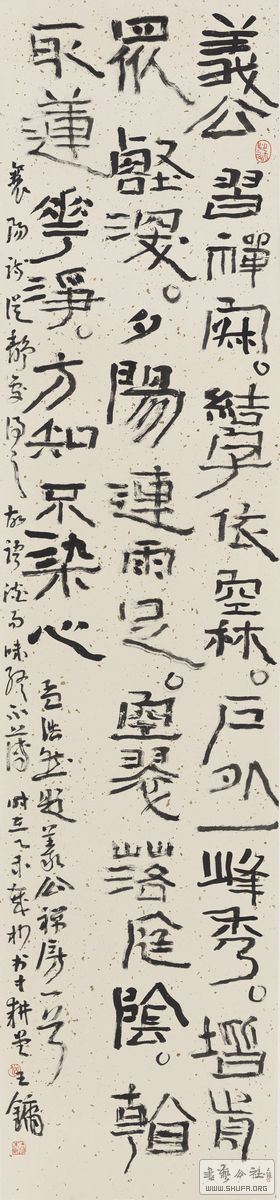 義公習禪寂。結宇依空林。戶外一峰秀。堦前
眾壑深。夕陽連雨足。空翠落庭陰。看
取蓮華淨。方知不染心
孟浩然題義公禪房一首
襄陽詩從靜處得之故語淡而味終不薄 時在乙未 耕堂王鏞
書藝公社
WWW.SHUFA.ORG